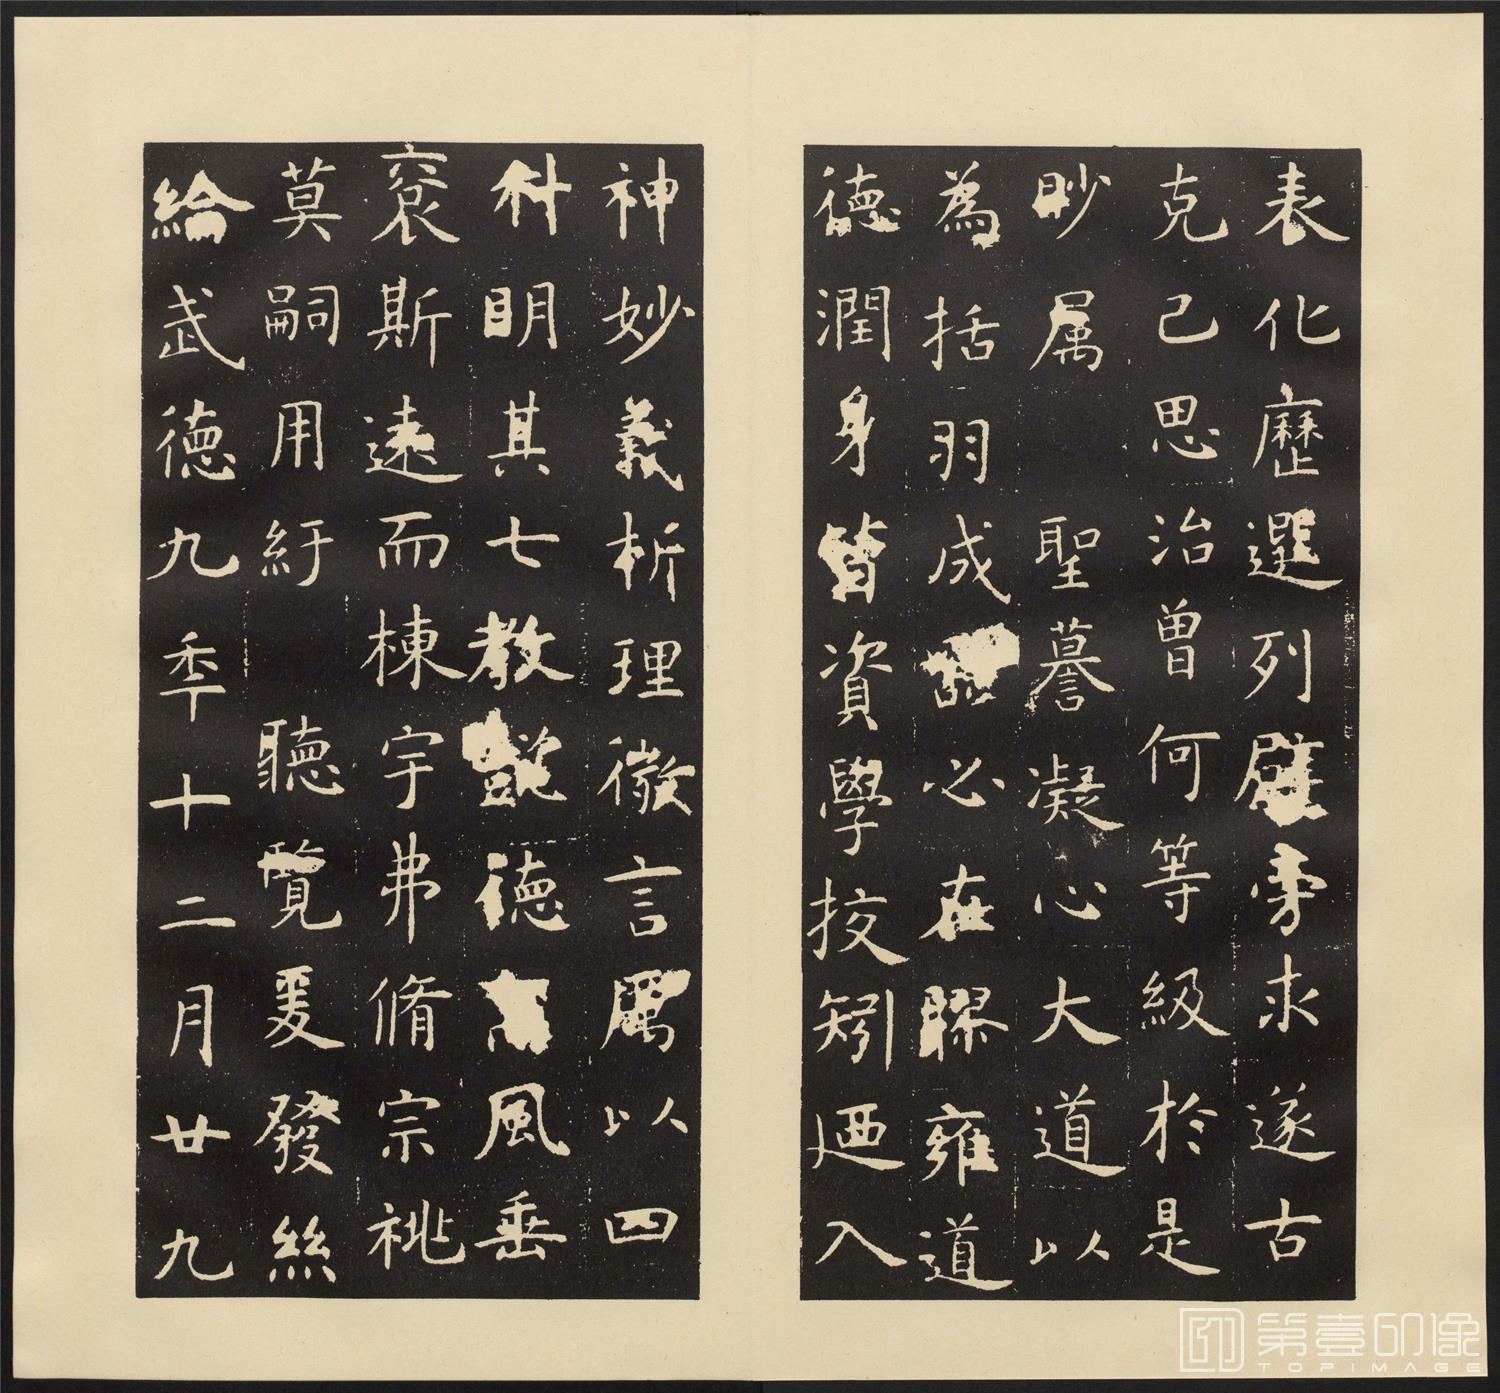 表化歷選列辟旁求遂古
克己思治曾何等級於是
眇属 聖謩凝心大道以
為括羽成器必在膠雍道
德潤身皆資學挍矧廼入
神妙義析理微言厲以四
科明其七教懿德高風垂
裒斯遠而棟宇弗脩宗祧
莫嗣用紆 聽覽爰發絲
綸武德九年十二月廿九
第壹印像
TOPIMAGE